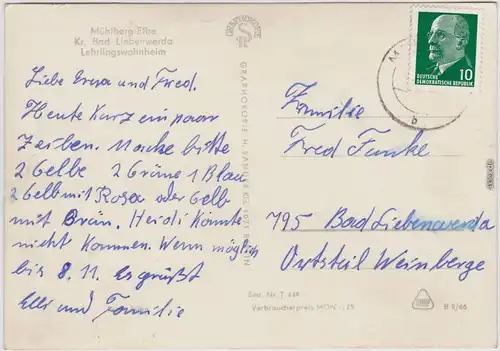 Mühlberg-Elbe
Kr. Bad Liebenwerda
Lehrlingswohnheim
Liebe Erna und Fred.
Heute Kurz ein paar
Zeilen. Mache bitte
2 Gelbe 2 Grüne 1 Blau
2 Gelb mit Rosa oder Gelb
mit Grün. Heidi konnte
nicht kommen. Wenn möglich
bis 8.11. Es grüßt
Elli und Familie
GRAPHOKOPIE
GRAPHOKOPIE H. SANDER KG, BERLIN
DEUTSCHE
DEMOKRATISCHE REPUBLIK
10
b
Familie
Fred Funke
795 Bad Liebenwerda
Ortsteil Weinberge
Best. Nr. T 488
Verbraucherpreis MDN -,25
B 2/65